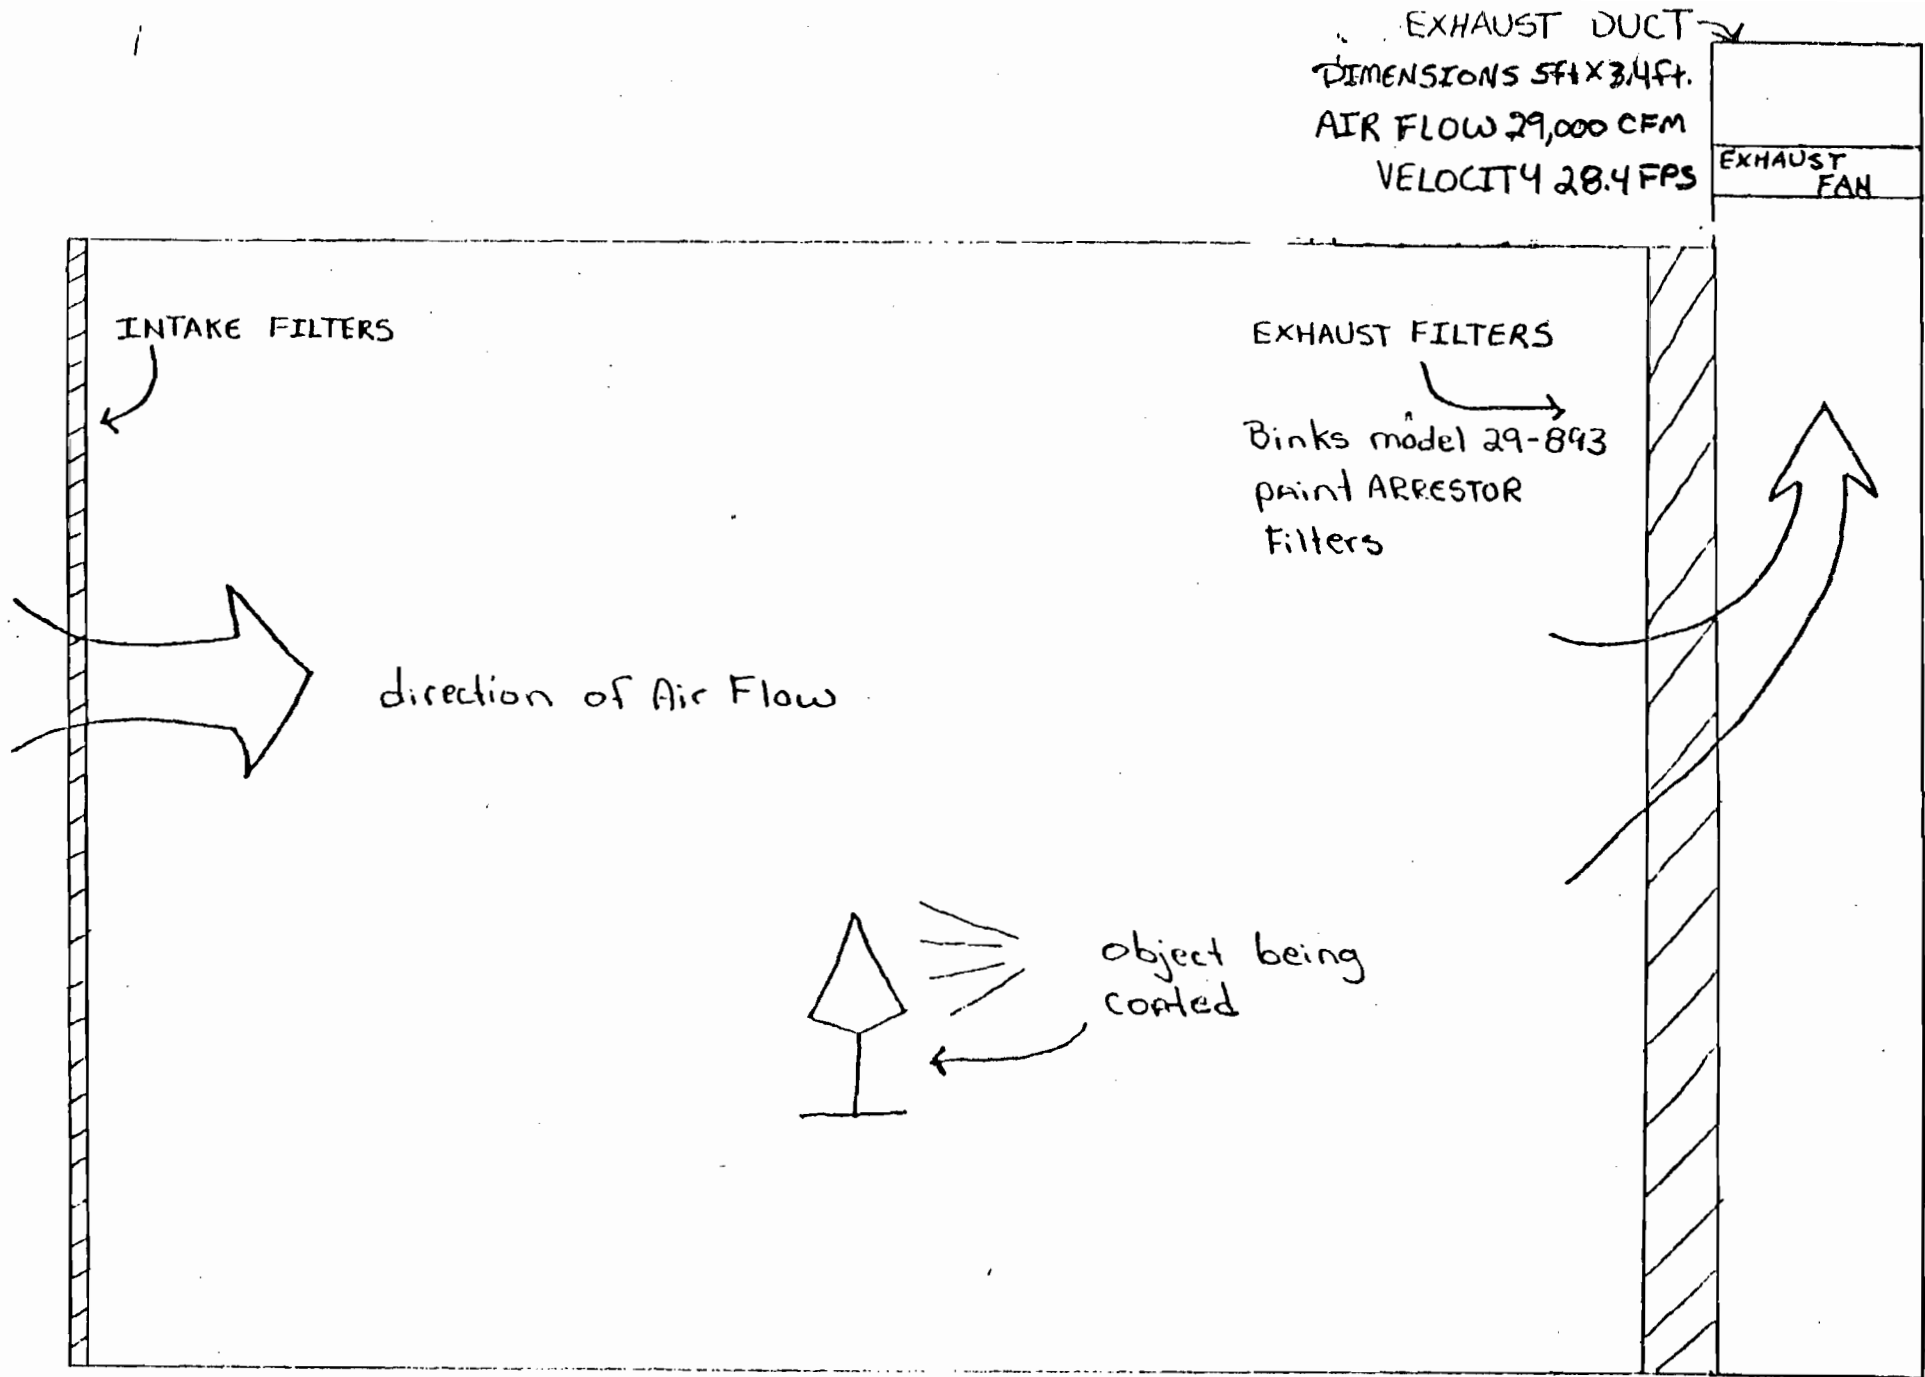 EXHAUST DUCT
DIMENSIONS 5ft X 3.4ft.
AIR FLOW 29,000 CFM
VELOCITY 28.4 FPS
EXHAUST
FAN
INTAKE FILTERS
EXHAUST FILTERS
Binks model 29-893
paint ARRESTOR
Filters
direction of Air Flow
object being
coated